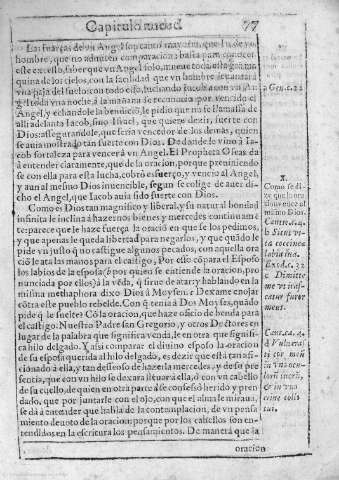 Capitulo nueue.
77
Las fuerças de vn Angel son tanto mayores, que las de vn
hombre, que no admiten comparacion: basta para conocer
este excesso, saber que vn Angel solo, mueue toda esta gran ma
quina de los cielos, con la facilidad que vn hombre leuantara
vna paja del suelo: con todo esso, luchando Iacob con vn An
gel toda vna noche, a la mañana se reconocio por vencido el
Angel, y echandole la bendicion, le pidio que no se llamasse de
alli adelante Iacob, sino Israel, que quiere dezir, fuerte con
Dios: assegurandole, que seria vencedor de los demas, quien
se auia mostrado tan fuerte con Dios. De donde le vino a Ia-
cob fortaleza para vencer a vn Angel. El Propheta Oseas da
a entender claramente, que de la oracion, porque preuiniendo
se con ella para esta lucha, cobrò esfuerço, y venciò al Angel,
y aun al mesmo Dios inuencible, segun se colige de auer di-
cho el Angel, que Iacob auia sido fuerte con Dios.
Como es Dios tan magnifico y liberal, y su natural bondad
infinita le inclina a hazernos bienes y mercedes continuamen
te: parece que le haze fuerça la oracion en que se los pedimos,
y que apenas le queda libertad para negarlos, y que quãdo le
pide vn justo q̃ no castigue algunos pecados, con aquella ora
ciõ le ata las manos para el castigo, Por esso cõpara el Esposo
los labios de la esposa (por quien se entiende la oracion, pro
nunciada por ellos) a la vẽda, q̃ sirue de atar: y hablando en la
misma methaphora dixo Dios à Moysen: Dexame enojar
cõtra este pueblo rebelde. Con q̃ tenia à Dos Moyses, quãdo
pide q̃ le suelte? Cõ la oracion, que haze oficio de benda para
el castigo. Nuestro Padre san Gregorio, y otros Doctores en
lugar de la palabra que significa venda, leen otra que signifi-
ca hilo delgado. Y assi comparar el diuino esposo la oracion
de su esposa querida al hilo delgado, es dezir que està tan afi-
cionado a ella, y tan desseoso de hazerla mercedes, y de su pre
sentia, que con vn hilo se dexara lleuar a ella, ò con vn cabello
de su cuello, de quien en otra parte à se confessò herido y pren-
dado, que por juntarle con el ojo, con que el alma le miraua,
se da à entender que habla de la contemplacion, de vn pensa
miento deuoto de la oracion: porque por los cabellos son en-
tendidos en la escritura los pensamientos. De manera que la
oracion
a Gen. c. 32
X.
Como se di-
ze que la ora
cion vence al
mismo Dios.
Cantc. 4.
b Sicut vi-
ta coccinea
labia tua.
Exod. c. 32
c Dimitte
me vt iras-
catur furor
meus.
Cant. ca. 4.
d Vulnera-
ti cor meũ
in vno ocu-
lorũ tuorũ,
& in vno
crine colli
tui.